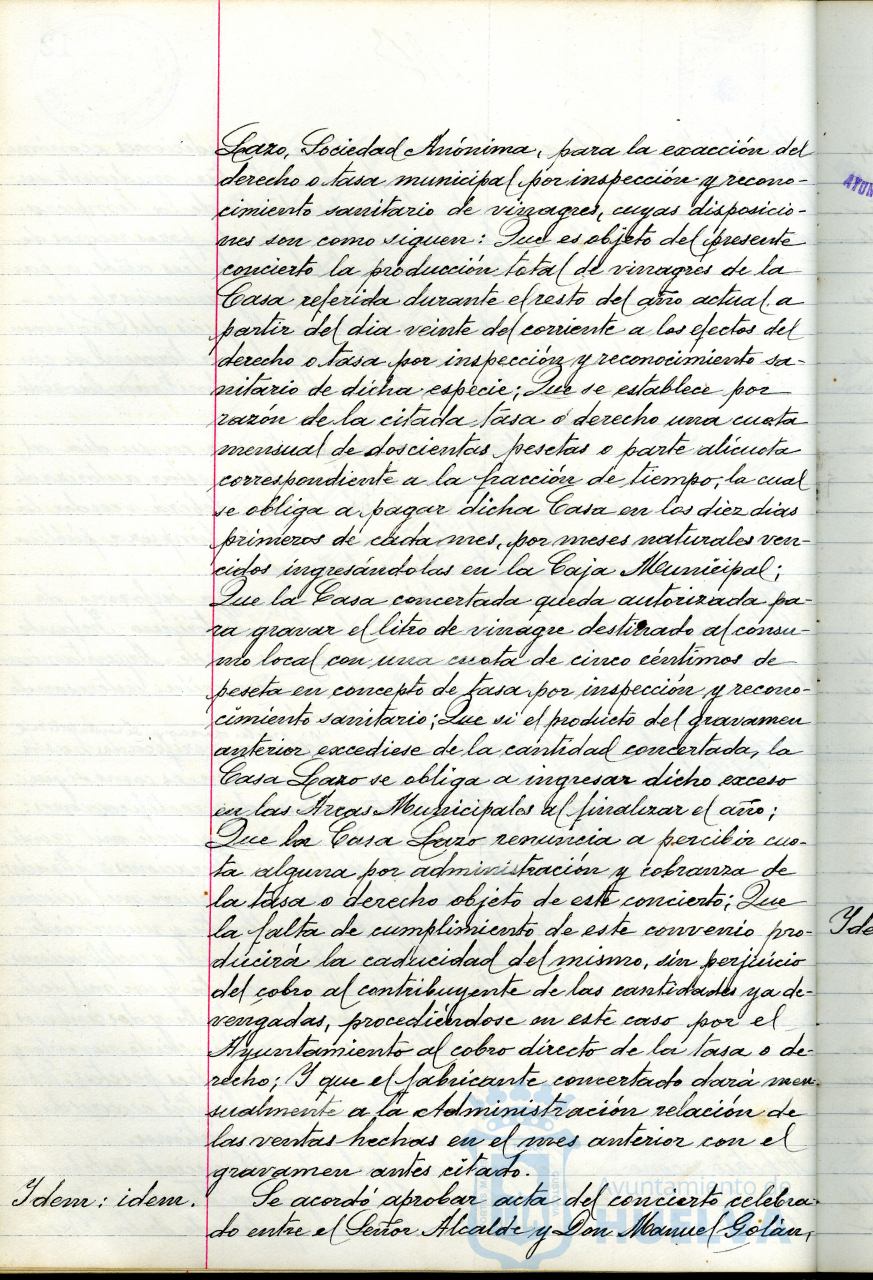 Lazo, Sociedad Anónima, para la exacción del
derecho o tasa municipal por inspección y recono-
cimiento sanitario de vinagres, cuyas disposicio-
nes son como siguen: Que es objeto del presente
concierto la producción total de vinagres de la
Casa referida durante el resto del año actual a
partir del dia veinte del corriente a los efectos del
derecho o tasa por inspección y reconocimiento sa-
nitario de dicha especie; Que se establece por
razón de la citada tasa o derecho una cuota
mensual de doscientas pesetas o parte alícuota
correspondiente a la fracción de tiempo, la cual
se obliga a pagar dicha Casa en los diez dias
primeros de cada mes, por meses naturales ven-
cidos ingresándolas en la Caja Municipal;
Que la Casa concertada queda autorizada pa-
ra gravar el litro de vinagre destinado al consu-
mo local con una cuota de cinco céntimos de
peseta en concepto de tasa por inspección y recono-
cimiento sanitario; Que si el producto del gravamen
anterior excediese de la cantidad concertada, la
Casa Lazo se obliga a ingresar dicho exceso
en las Arcas Municipales al finalizar el año;
Que la Casa Lazo renuncia a percibir cuo-
ta alguna por administración y cobranza de
la tasa o derecho objeto de este concierto; Que
la falta de cumplimiento de este convenio pro-
ducirá la caducidad del mismo, sin perjuicio
del cobro al contribuyente de las cantidades ya de-
vengadas, procediéndose en este caso por el
Ayuntamiento al cobro directo de la tasa o de-
recho; Y que el fabricante concertado dará men-
sualmente a la Administración relación de
las ventas hechas en el mes anterior con el
gravamen antes citado.
Ydem: idem. Se acordó aprobar acta del concierto celebra-
do entre el Señor Alcalde y Don Manuel Golán,
Ayuntamiento de
HUELVA